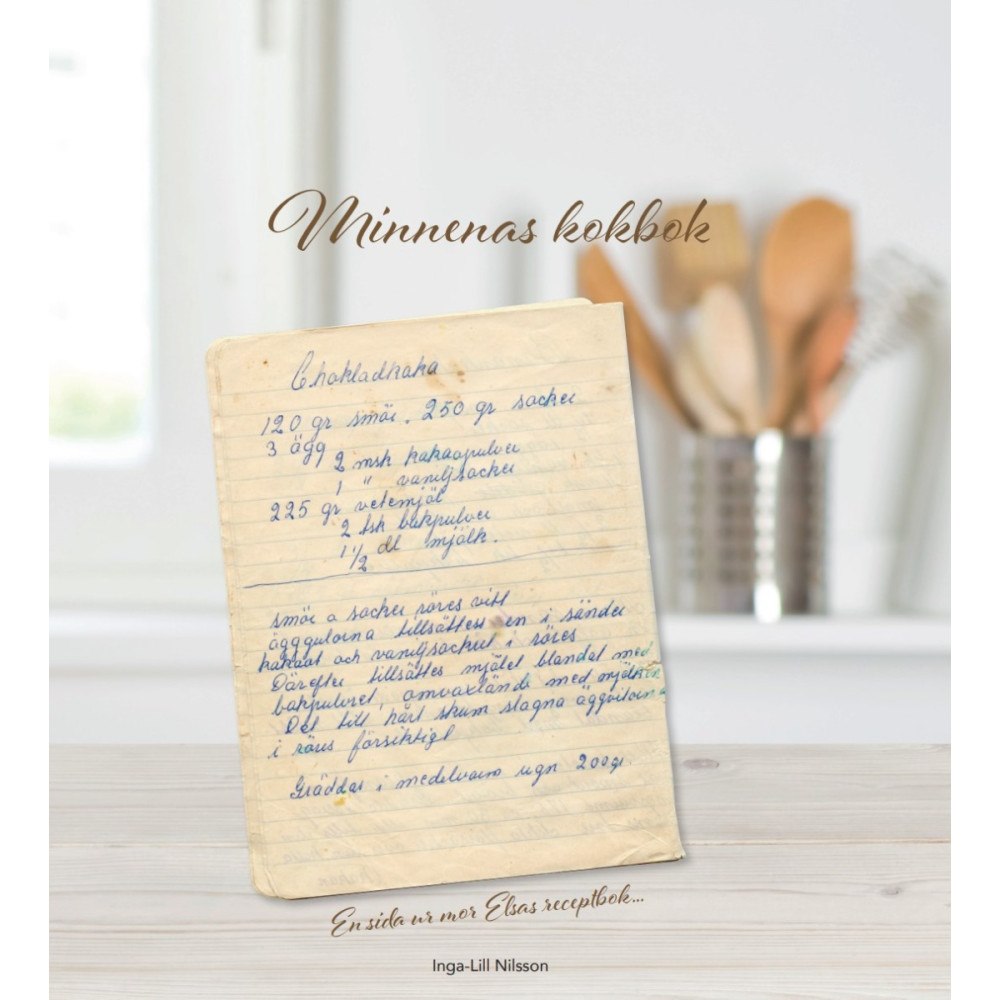 Minnenas kokbok
Chokladkaka
120 gr smör. 250 gr socker
3 ägg
2 msk kakaopulver
1 " vaniljsocker
225 gr vetemjöl
2 tsk bakpulver
1 1/2 dl mjölk.
smör o socker röres vitt
äggguloina tillsättess en i sänder
kakaot och vaniljsockret i röres
Därefter tillsättes mjölet blandat med
bakpulvret, omvaxlande med mjölken
Det till hårt skum slagna äggvitorna
i röres försiktigt
Gräddas i medelvarm ugn 200gr.
En sida ur mor Elsas receptbok...
Inga-Lill Nilsson